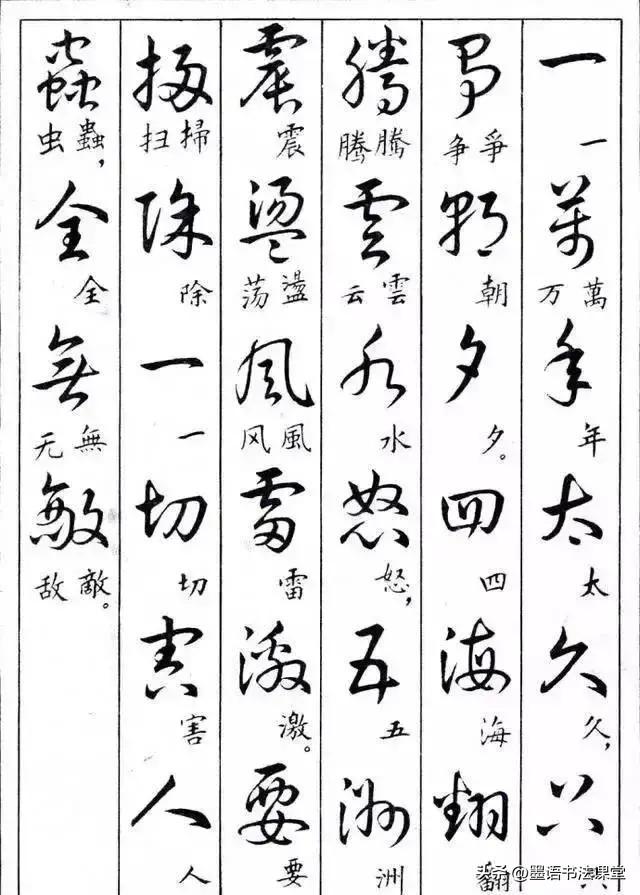 一萬年太久只
一萬万年太久，只
爭朝夕四海翻
爭争朝夕。四海翻
騰雲水怒五洲
騰腾雲云水怒，五洲
震盪風雷激要
震盪荡風风雷激。要
掃除一切害人
掃扫除一切害人
蟲全無敵
蟲虫，全無无敵敌。
头条@墨语书法课堂